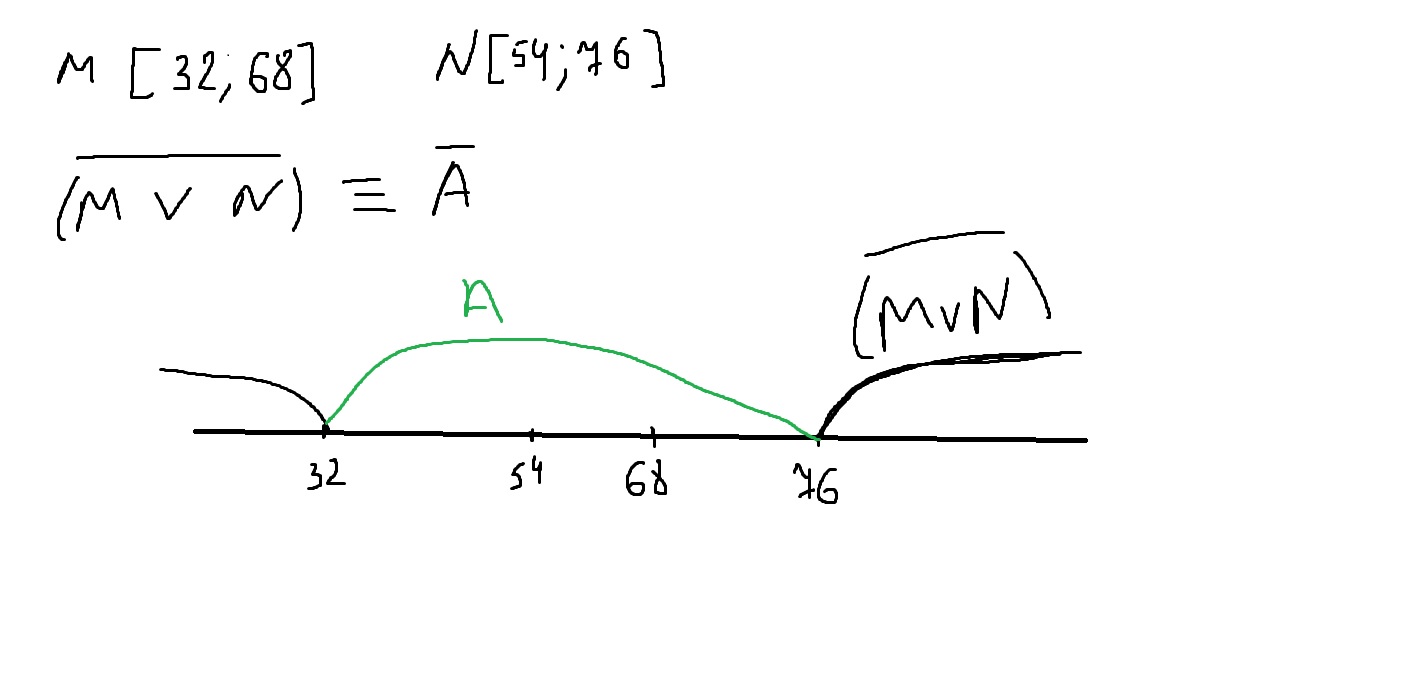 M [32; 68] N[54; 76]
(M ∨ N)̅ ≡ A̅
A
(M∨N)̅
32 54 68 76